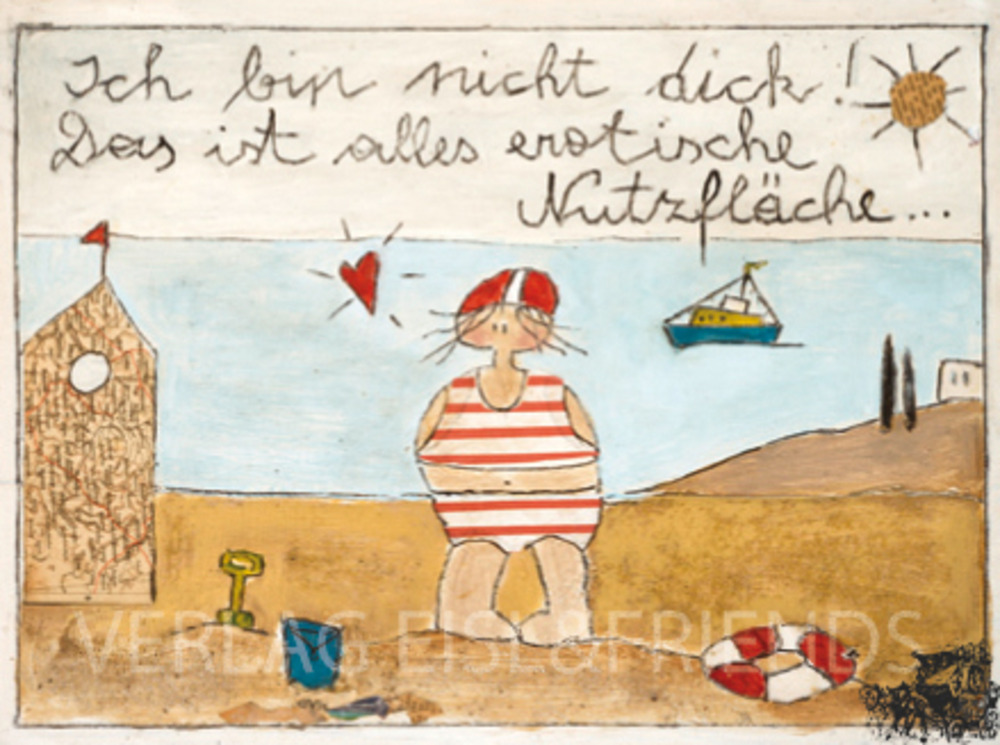 Ich bin nicht dick!
Das ist alles erotische
Nutzfläche...
VERLAG EISL&FRIENDS